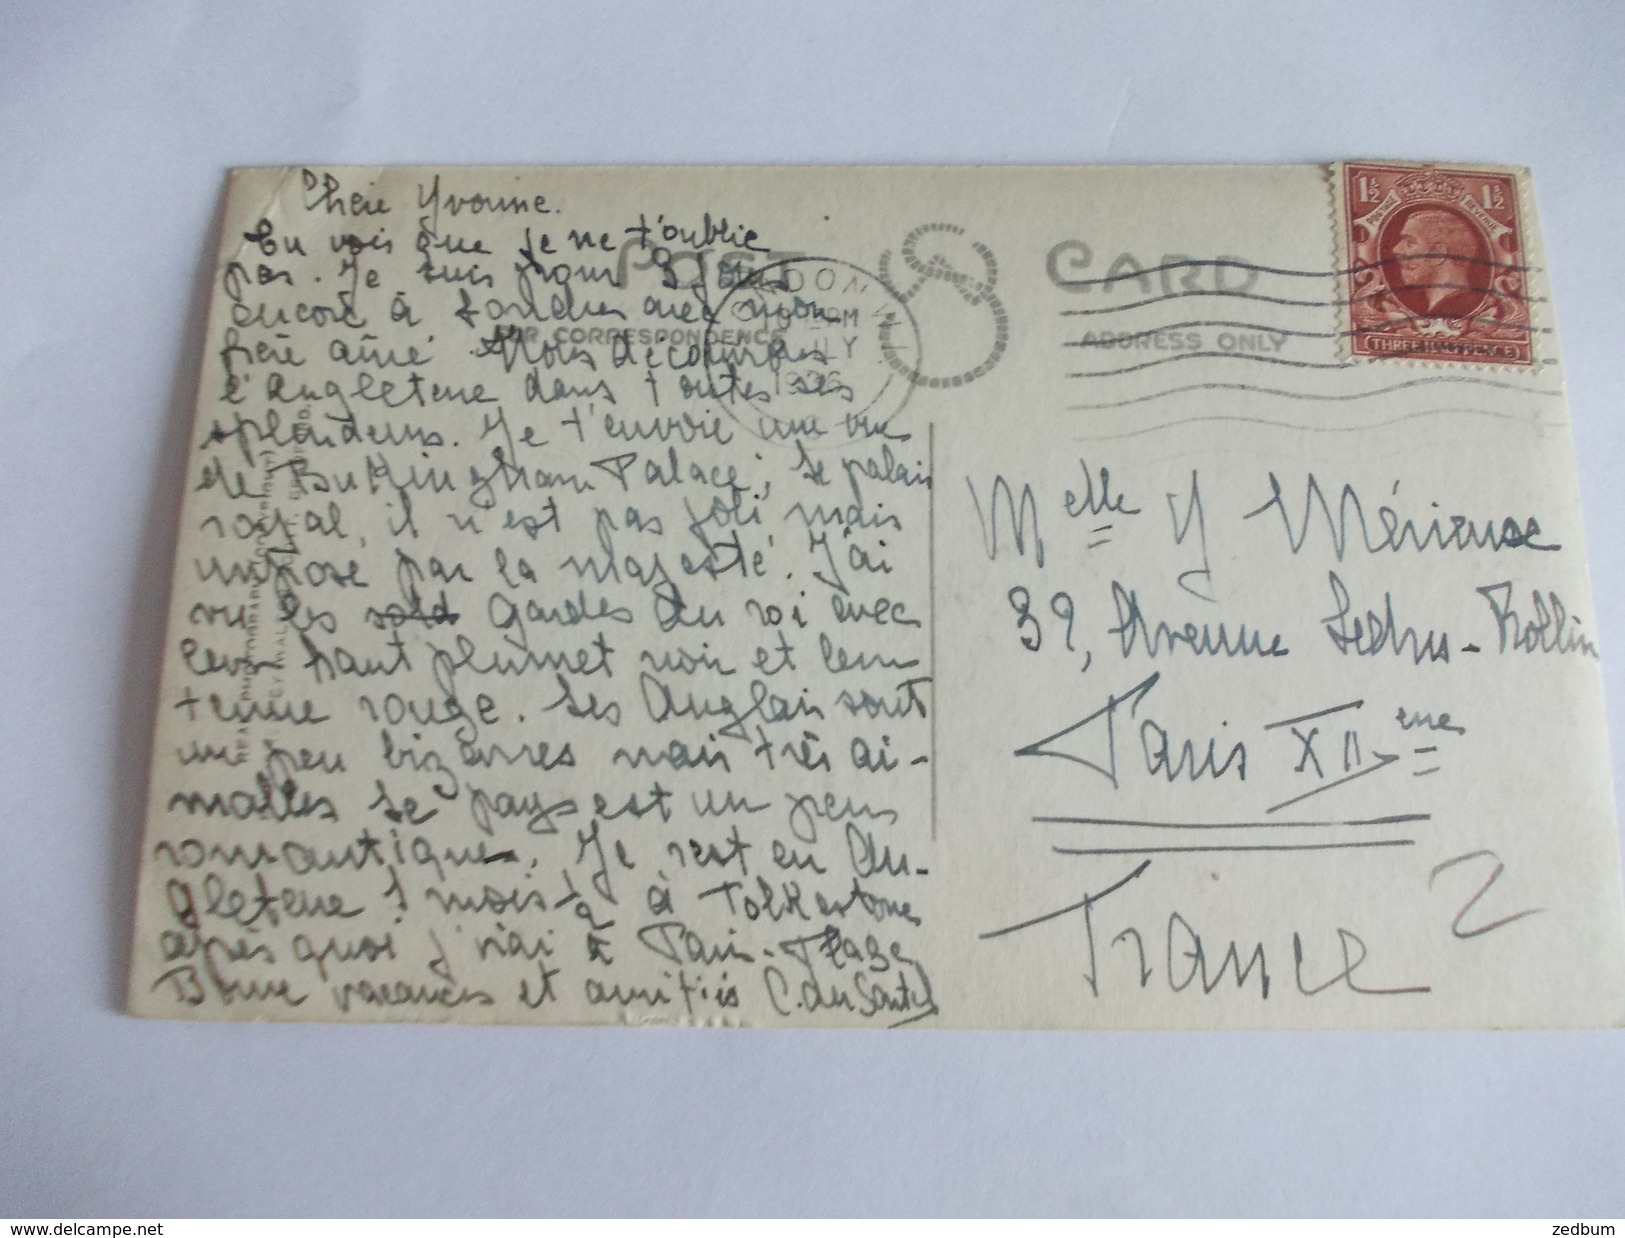 Chère Yvonne.
tu vois que je ne t'oublie
pas. Je suis pour 3 jours
encore à Londres avec mon
frère aîné. Nous découvrons
l'Angleterre dans toutes ses
splendeurs. Je t'envoie une vue
de Bukingham Palace; le palais
royal, il n'est pas joli mais
impose par la majesté. J'ai
vu les gardes du roi avec
leur haut plumet noir et leur
tenue rouge. Les Anglais sont
un peu bizarres mais très ai-
mables le pays est un peu
romantique. Je rest en An-
gleterre 1 mois 1/2 à Folkestone
après quoi j'irai à Paris-Plage
Bonne vacances et amitiés C. du
POST CARD
FOR CORRESPONDENCE
ADDRESS ONLY
LONDON W.1
PM
JLY
1936
1½ 1½
POSTAGE REVENUE
THREE HALFPENCE
Melle Y
39, Avenue Ledru-Rollin
Paris XIIeme
France
2
delcampe.net
zedbum